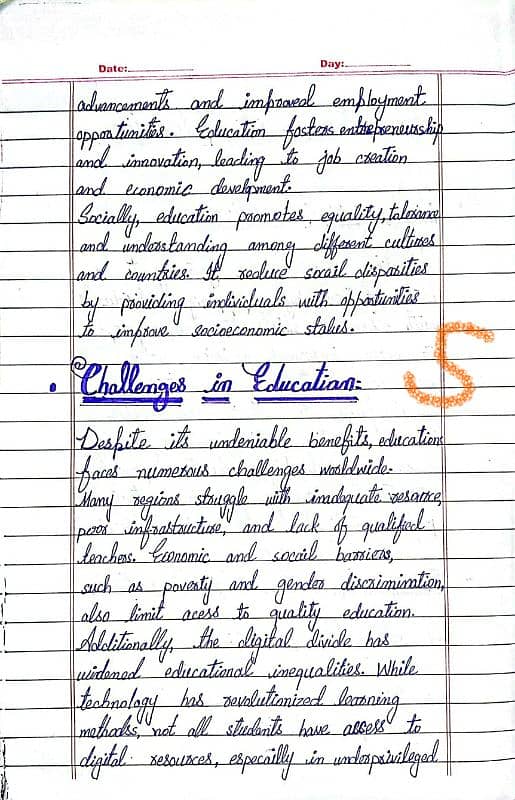 Date:
Day:
advancements and improved employment
opportunities. Education fosters entrepreneurship
and innovation, leading to job creation
and economic development.
Socially, education promotes equality, tolerance
and understanding among different cultures
and countries. It reduce socail disparities
by providing individuals with opportunities
to improve socioeconomic status.
S
• Challenges in Education:-
Despite its undeniable benefits, education
faces numerous challenges worldwide.
Many regions struggle with inadequate resource,
poor infrastructure, and lack of qualified
teachers. Economic and socail barriers,
such as poverty and gender discrimination,
also limit acess to quality education.
Additionally, the digital divide has
widened educational inequalities. While
technology has revolutionized learning
methodss, not all students have access to
digital resources, especailly in underprivileged